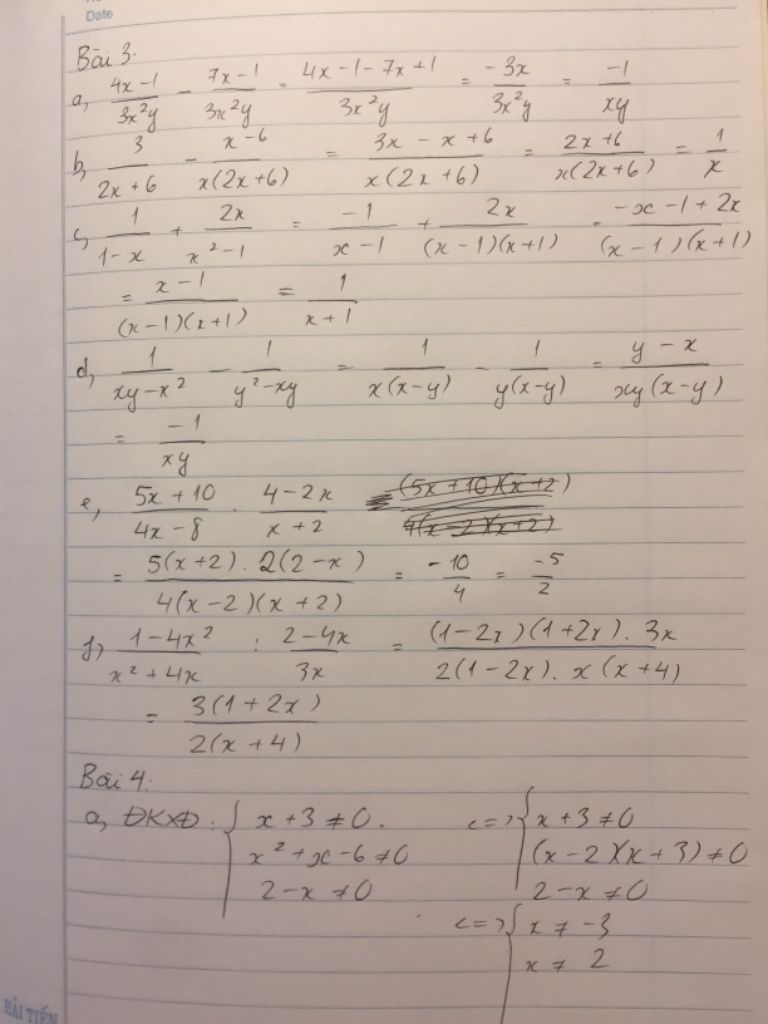 Date
Bài 3.
a, \frac{4x-1}{3x^2y} - \frac{7x-1}{3x^2y} = \frac{4x-1-7x+1}{3x^2y} = \frac{-3x}{3x^2y} = \frac{-1}{xy}
b, \frac{3}{2x+6} - \frac{x-6}{x(2x+6)} = \frac{3x-x+6}{x(2x+6)} = \frac{2x+6}{x(2x+6)} = \frac{1}{x}
c, \frac{1}{1-x} + \frac{2x}{x^2-1} = \frac{-1}{x-1} + \frac{2x}{(x-1)(x+1)} = \frac{-x-1+2x}{(x-1)(x+1)}
= \frac{x-1}{(x-1)(x+1)} = \frac{1}{x+1}
d, \frac{1}{xy-x^2} - \frac{1}{y^2-xy} = \frac{1}{x(x-y)} - \frac{1}{y(x-y)} = \frac{y-x}{xy(x-y)}
= \frac{-1}{xy}
e, \frac{5x+10}{4x-8} . \frac{4-2x}{x+2}
= \frac{5(x+2).2(2-x)}{4(x-2)(x+2)} = \frac{-10}{4} = \frac{-5}{2}
f, \frac{1-4x^2}{x^2+4x} : \frac{2-4x}{3x} = \frac{(1-2x)(1+2x).3x}{2(1-2x).x(x+4)}
= \frac{3(1+2x)}{2(x+4)}
Bài 4:
a, ĐKXĐ: { x+3≠0. <=> { x+3≠0
x^2+x-6≠0 (x-2)(x+3)≠0
2-x≠0 2-x≠0
<=> { x≠-3
x≠2
HẢI TIẾN